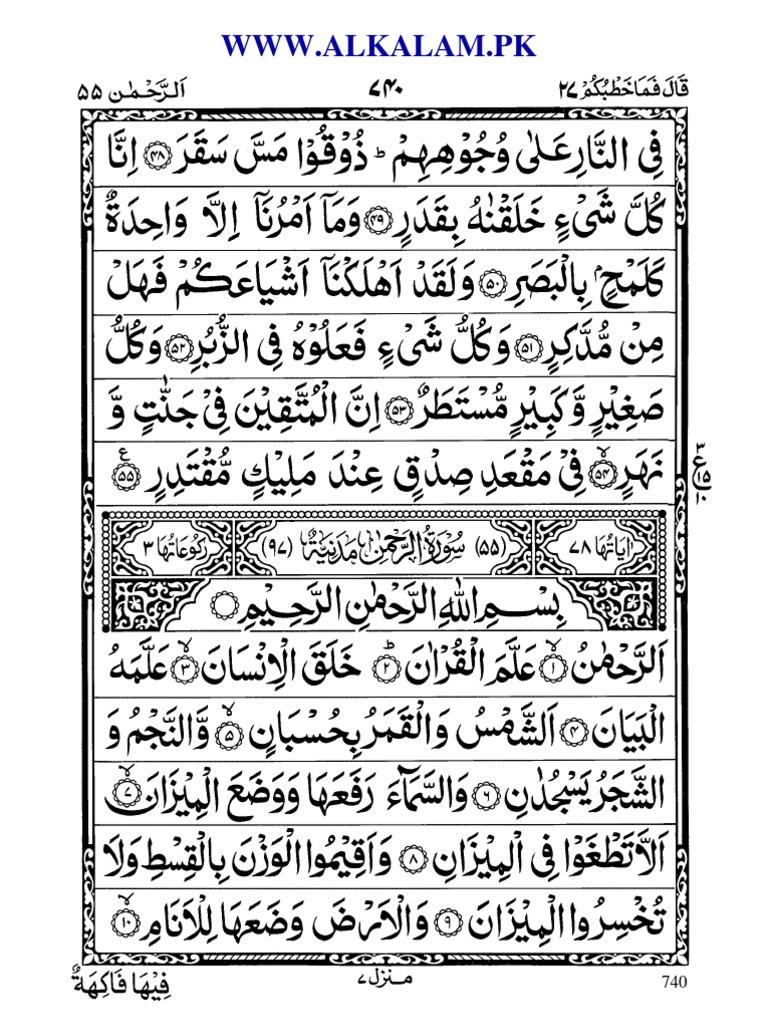 WWW.ALKALAM.PK
قَالَ فَمَا خَطْبُكُمْ ٢٧
٧٤٠
اَلرَّحْمٰن ٥٥
فِى النَّارِ عَلٰى وُجُوْهِهِمْ ؕ ذُوْقُوْا مَسَّ سَقَرَ ﴿٤٨﴾ اِنَّا
كُلَّ شَىْءٍ خَلَقْنٰهُ بِقَدَرٍ ﴿٤٩﴾ وَمَاۤ اَمْرُنَاۤ اِلَّا وَاحِدَةٌ
كَلَمْحٍۭ بِالْبَصَرِ ﴿٥٠﴾ وَلَقَدْ اَهْلَكْنَاۤ اَشْيَاعَكُمْ فَهَلْ
مِنْ مُّدَّكِرٍ ﴿٥١﴾ وَكُلُّ شَىْءٍ فَعَلُوْهُ فِى الزُّبُرِ ﴿٥٢﴾ وَكُلُّ
صَغِيْرٍ وَّكَبِيْرٍ مُّسْتَطَرٌ ﴿٥٣﴾ اِنَّ الْمُتَّقِيْنَ فِىْ جَنّٰتٍ وَّ
نَهَرٍ ﴿٥٤﴾ۙ فِىْ مَقْعَدِ صِدْقٍ عِنْدَ مَلِيْكٍ مُّقْتَدِرٍ ﴿٥٥﴾ ع
٣ ع ١٥ ١٠
اٰيَاتُهَا ٧٨ (٥٥) سُوْرَةُ الرَّحْمٰنِ مَدَنِيَّةٌ (٩٧) رُكُوْعَاتُهَا ٣
بِسْمِ اللّٰهِ الرَّحْمٰنِ الرَّحِيْمِ
اَلرَّحْمٰنُ ﴿١﴾ۙ عَلَّمَ الْقُرْاٰنَ ﴿٢﴾ؕ خَلَقَ الْاِنْسَانَ ﴿٣﴾ۙ عَلَّمَهُ
الْبَيَانَ ﴿٤﴾ اَلشَّمْسُ وَالْقَمَرُ بِحُسْبَانٍ ﴿٥﴾ۙ وَّالنَّجْمُ وَ
الشَّجَرُ يَسْجُدٰنِ ﴿٦﴾ وَالسَّمَآءَ رَفَعَهَا وَوَضَعَ الْمِيْزَانَ ﴿٧﴾ۙ
اَلَّا تَطْغَوْا فِى الْمِيْزَانِ ﴿٨﴾ وَاَقِيْمُوا الْوَزْنَ بِالْقِسْطِ وَلَا
تُخْسِرُوا الْمِيْزَانَ ﴿٩﴾ وَالْاَرْضَ وَضَعَهَا لِلْاَنَامِ ﴿١٠﴾ۙ
740
منزل ٧
فِيْهَا فَاكِهَةٌ